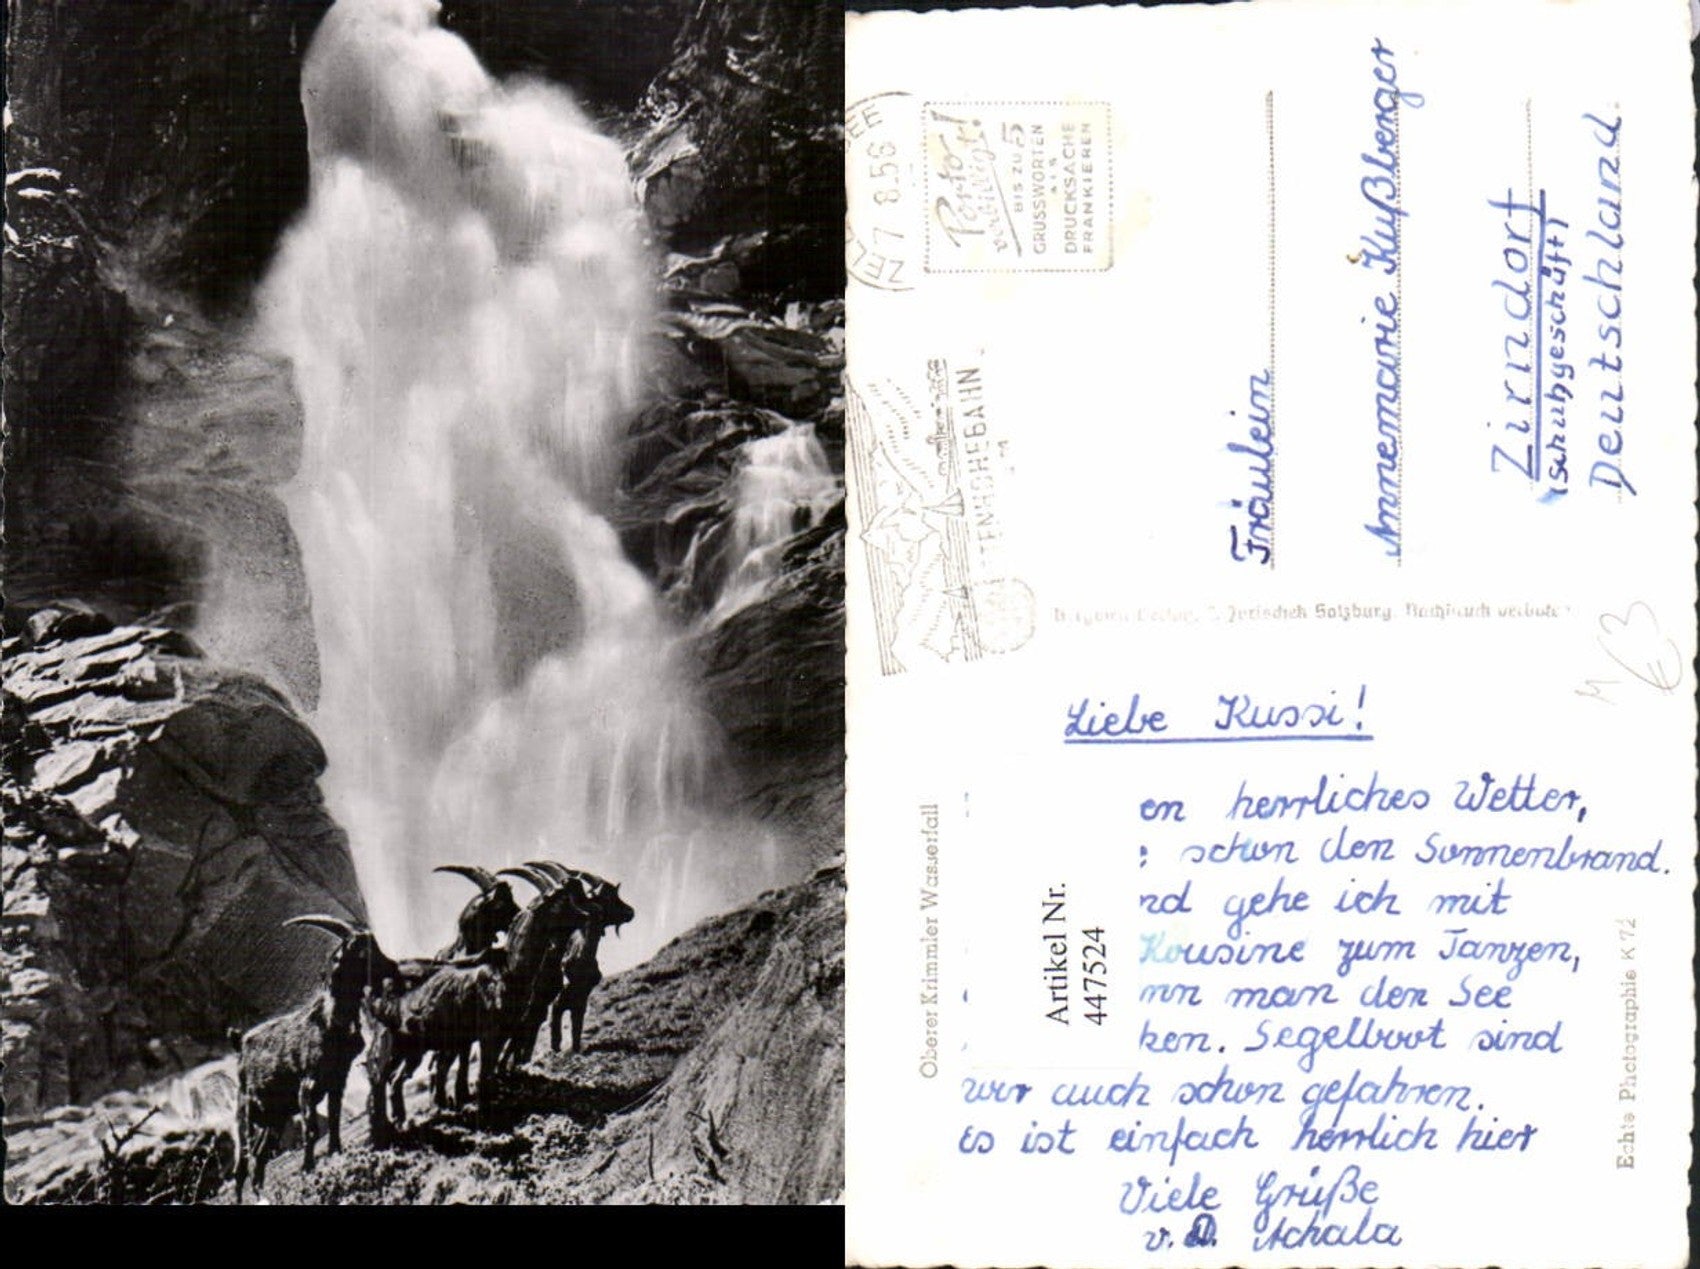 ZELL
SEE
7 8.56
Porto-
verbilligt!
BIS ZU 5
GRUSSWORTEN
ALS
DRUCKSACHE
FRANKIEREN
Fräulein
Annemarie Kußberger
Zirndorf
(Schuhgeschäft)
Deutschland
Jurischek Salzburg. Nachdruck verboten
Liebe Kussi!
en herrliches Wetter,
schon den Sonnenbrand.
nd gehe ich mit
Kousine zum Tanzen,
nn man den See
ken. Segelboot sind
wir auch schon gefahren.
Es ist einfach herrlich hier
Viele Grüße
v. D.
Artikel Nr.
447524
Oberer Krimmler Wasserfall
Echte Photographie K 72
€3